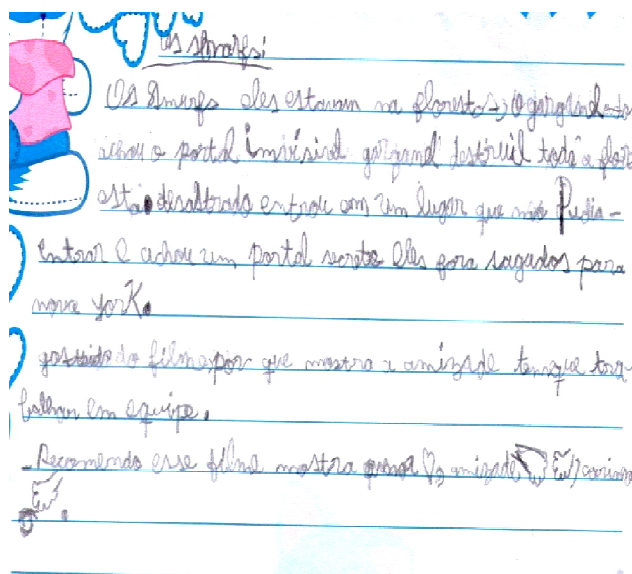 os smurfs:
Os Smurfs eles estavam na floresta, o gargamel
achou o portal imvisivel gargamel destruil toda a flore
esta desastrado entrou em um lugar que não Pudia-
entrar e achou um portal secreto eles fora sugados para
nova yorK.
gostei do filme por que mostra a amizade tem que tra
balhar em equipe.
-Recomendo esse filme mostra amor amizade carinho